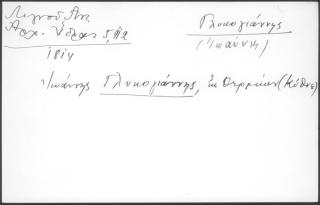 Λιγνοῦ Ἀντ.
Ἀρχ. Ὕδρας 5, 112
1814
Γλυκογιάννης
(Ἰωάννης)
Ἰωάννης Γλυκογιάννης, ἐκ Θερμίων (Κύθνος)